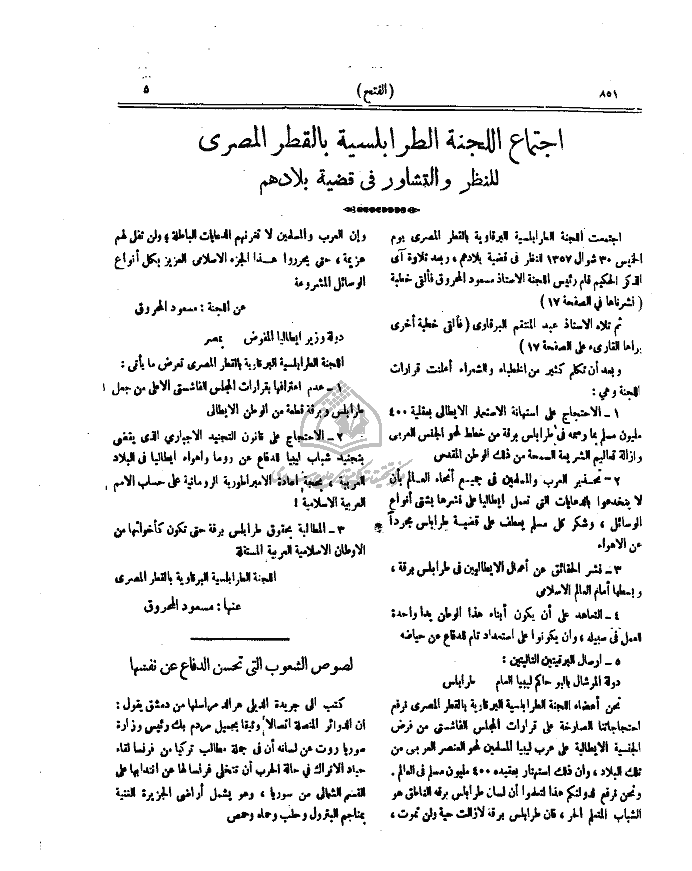 ٨٥١ (الفتح) ٥
اجتماع اللجنة الطرابلسية بالقطر المصرى
للنظر والتشاور فى قضية بلادهم
اجتمعت اللجنة الطرابلسية البرقاوية بالقطر المصرى يوم
الخميس ٣٠ شوال ١٣٥٧ للنظر فى قضية بلادهم ، وبعد تلاوة آى
الذكر الحكيم قام رئيس اللجنة الاستاذ مسعود المحروق فألقى خطبة
( نشرناها فى الصفحة ١٧ )
ثم تلاه الاستاذ عبد المنتقم البرقاوى ( فألقى خطبة أخرى
يراها القارىء على الصفحة ١٧ )
وبعد أن تكلم كثير من الخطباء والشعراء أعلنت قرارات
اللجنة وهى :
١ – الاحتجاج على استهانة الاستعمار الايطالى بعقلية ٤٠٠
مليون مسلم بما رسمه فى طرابلس برقة من خطط لمحو الجنس العربى
وازالة تعاليم الشريعة السمحة من ذلك الوطن المقدس
٢ – تحذير العرب والمسلمين فى جميع أنحاء العالم بأن
لا ينخدعوا بالدعايات التى تعمل ايطاليا على نشرها بشتى أنواع
الوسائل ، وشكر كل مسلم يعطف على قضية طرابلس مجرداً
عن الاهواء
٣ – نشر الحقائق عن أعمال الايطاليين فى طرابلس برقة ،
وبسطها أمام العالم الاسلامى
٤ – التعاهد على أن يكون أبناء هذا الوطن يدا واحدة
العمل فى سبيله ، وان يكونوا على استعداد تام للدفاع عن حياضه
٥ – ارسال البرقيتين التاليتين :
دولة المرشال بالبو حاكم ليبيا العام طرابلس
نحن أعضاء اللجنة الطرابلسية البرقاوية بالقطر المصرى نرفع
احتجاجاتنا الصارخة على قرارات المجلس الفاشستى من فرض
الجنسية الايطالية على عرب ليبيا المسلمين لمحو العنصر العربى من
تلك البلاد ، وان ذلك استهتار بعقيدة ٤٠٠ مليون مسلم فى العالم .
ونحن نرفع لدولتكم هذا لتعلموا أن لسان طرابلس برقه الناطق هو
الشباب المتعلم الحر ، فان طرابلس برقة لازالت حية ولن تموت ،
وإن العرب والمسلمين لا تغرنهم الدعايات الباطلة ، ولن تفل لهم
هزيمة ، حتى يحرروا هذا الجزء الاسلامى العزيز بكل أنواع
الوسائل المشروعة
عن اللجنة : مسعود المحروق
دولة وزير ايطاليا المفوض بمصر
اللجنة الطرابلسية البرقاوية بالقطر المصرى تعرض ما يأتى :
١ – عدم اعترافها بقرارات المجلس الفاشستى الاعلى من جعل
طرابلس وبرقة قطعة من الوطن الايطالى
٢ – الاحتجاج على قانون التجنيد الاجبارى الذى يقضى
بتجنيد شباب ليبيا للدفاع عن روما وأهواء ايطاليا فى البلاد
العربية ، بحجة إعادة الامبراطورية الرومانية على حساب الامم
العربية الاسلامية !
٣ – المطالبة بحقوق طرابلس برقة حتى تكون كأخواتها من
الاوطان الاسلامية العربية المستقلة
اللجنة الطرابلسية البرقاوية بالقطر المصرى
عنها : مسعود المحروق
لصوص الشعوب التى تحسن الدفاع عن نفسها
كتب الى جريدة الديلى هرالد مراسلها من دمشق يقول :
ان الدوائر المتصلة اتصالا وثيقا بجميل مردم بك رئيس وزارة
سوريا روت عن لسانه أن فى جملة مطالب تركيا من فرنسا لقاء
حياد الاتراك فى حالة الحرب أن تتخلى فرنسا لها عن انتدابها على
القسم الشمالى من سوريا ، وهو يشمل أراضى الجزيرة الغنية
بمناجم البترول وحلب وحماه وحمص